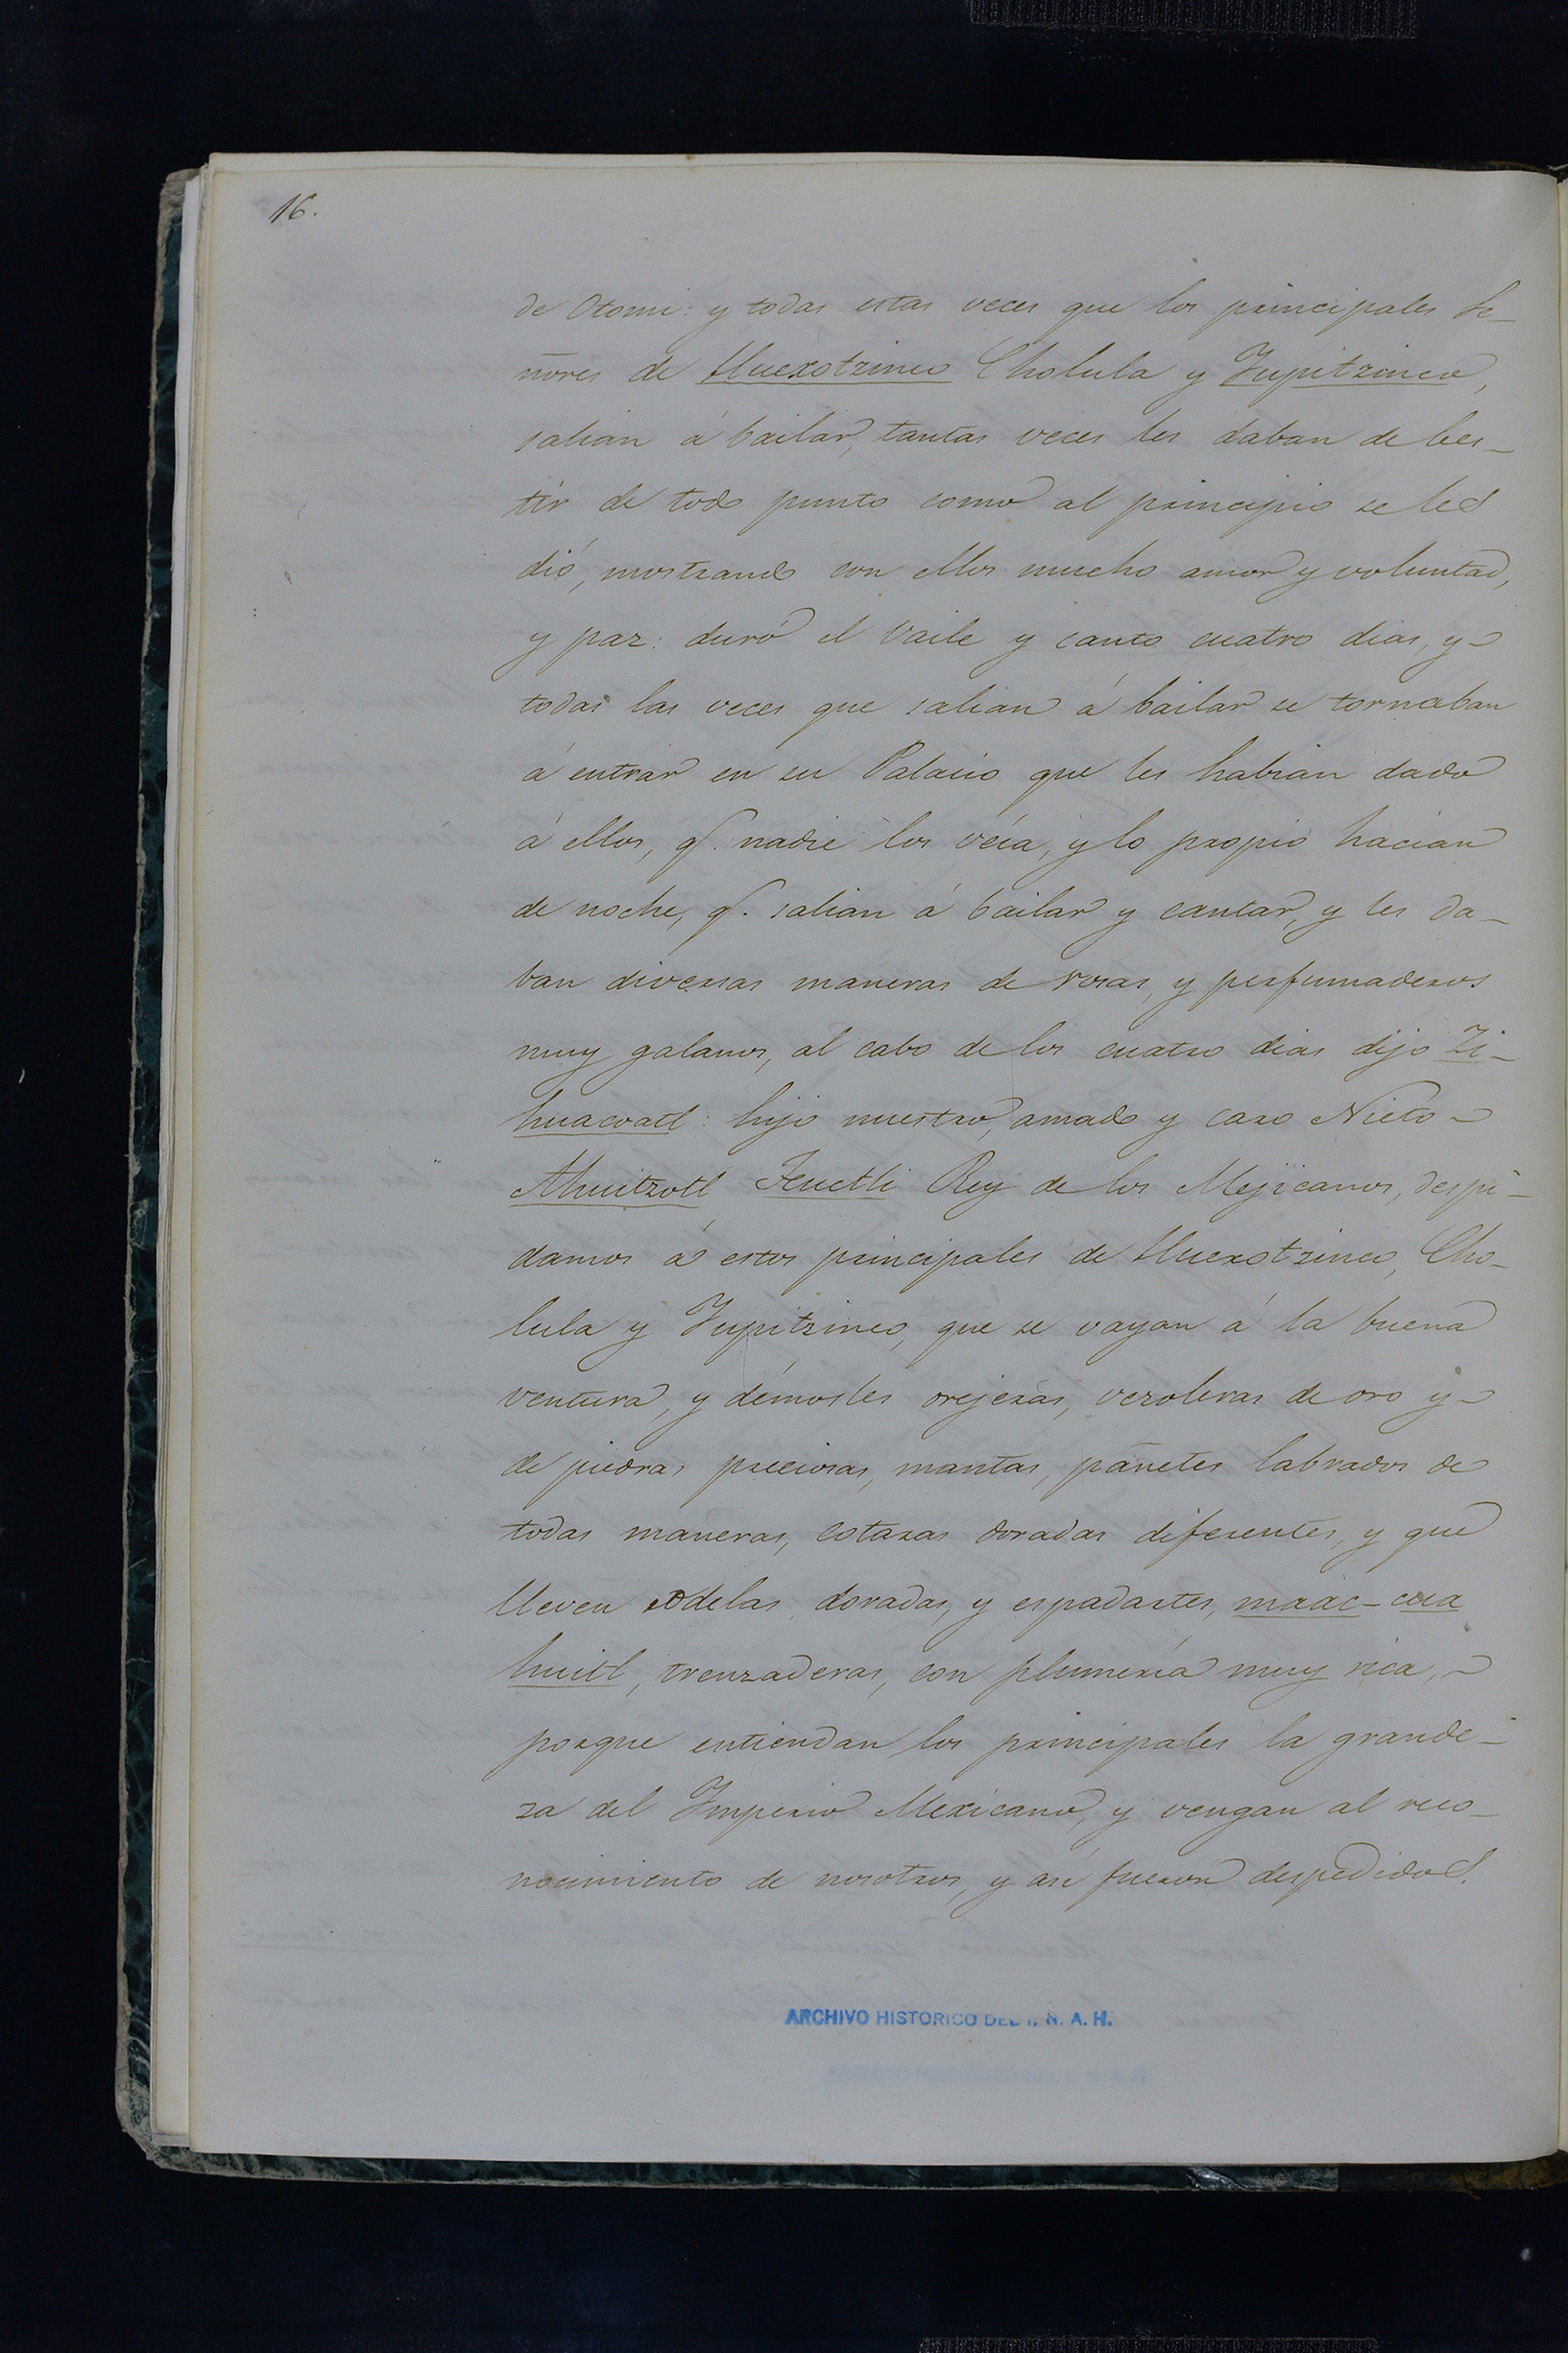 16.
de Otomi: y todas estas veces que los principales Se-
ñores de Huexotzinco Cholula y Yupitzinco,
salian á bailar, tantas veces les daban de bes-
tir de todo punto como al principio se les
dió, mostrando con ellos mucho amor y voluntad,
y paz: duró el vaile y canto cuatro dias, y
todas las veces que salian á bailar se tornaban
á entrar en su Palacio que les habian dado
á ellos, q. nadie los véia, y lo propio hacian
de noche, q. salian á bailar y cantar, y les da-
ban diversas maneras de rosas, y perfumaderos
muy galanos, al cabo de los cuatro dias dijo Zi-
huacoatl: hijo nuestro, amado y caro Nieto
Ahuitzotl Teuctli Rey de los Mejicanos, despi-
damos á estos principales de Huexotzinco, Cho-
lula y Yupitzinco, que se vayan á la buena
ventura, y démosles orejeras, vezoleras de oro y
de piedras preciosas, mantas, pañetes labrados de
todas maneras, cotaras doradas diferentes, y que
lleven rodelas doradas, y espadartes, maac-cua
huitl, trenzaderas, con plumería muy rica,
porque entiendan los principales la grande-
za del Imperio Mexicano, y vengan al reco-
nocimiento de nosotros, y asi fueron despedidos.
ARCHIVO HISTORICO DEL I. N. A. H.